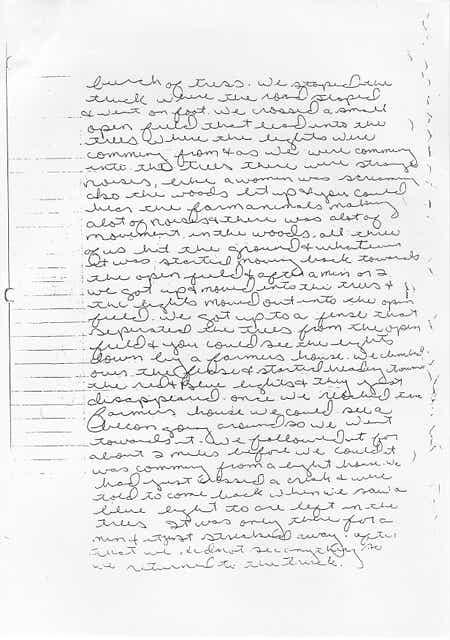 bunch of tress. We stoped the
truck where the road stoped
& went on foot. We crossed a small
open field that lead into the
trees where the lights were
comming from & as we were comming
into the trees there were strange
noises, like a woman was screaming
also the woods lit up & you could
hear the farm animals making
alot of noises & there was alot of
movement in the woods. all three
of us hit the ground & whatever
it was started moving back towards
the open field & after a min or 2
we got up & moved into the trees &
the lights moved out into the open
field. We got up to a fense that
seperated the trees from the open
field & you could see the lights
down by a farmers house. We climbed
over the fense & started heading towards
the red & blue lights & they just
disappeared. once we reached the
farmers house we could see a
Beccon going around so we went
towards it. We followed it for
about 2 miles before we could
was comming from a light house. We
had just crossed a creek & were
told to come back when we saw a
blue light to are left in the
trees It was only there for a
min & it just streaked away. after
that we did not see anything so
we returned to the truck.